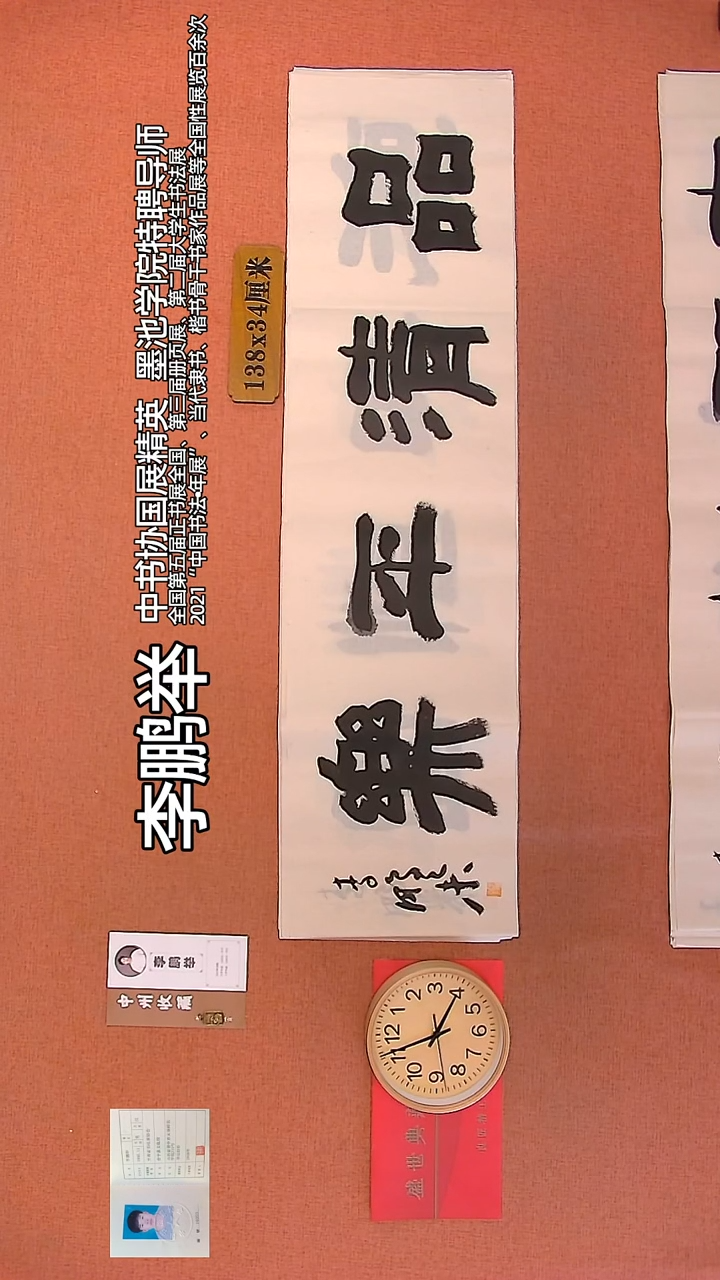 李鹏举
中书协国展精英 墨池学院特聘导师
全国第五届正书展全国、第三届册页展、第二届大学生书法展
2021“中国书法·年展”、当代隶书、楷书骨干书家作品展等全国性展览百余次
138x34厘米
品清平樂
李鹏举
李鹏举
中州收藏
12
1
2
3
4
5
6
7
8
9
10
11
盛世典